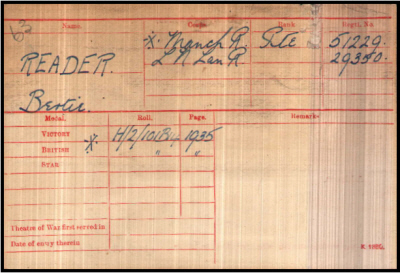 63
Name. Corps. Rank. Regtl. No.
READER. * Manch R Pte 51229.
Bertie. L N Lan R 29350.
Medal. Roll. Page. Remarks
VICTORY * H/2/101B14 1935
BRITISH * " "
STAR
Theatre of War first served in
Date of entry therein